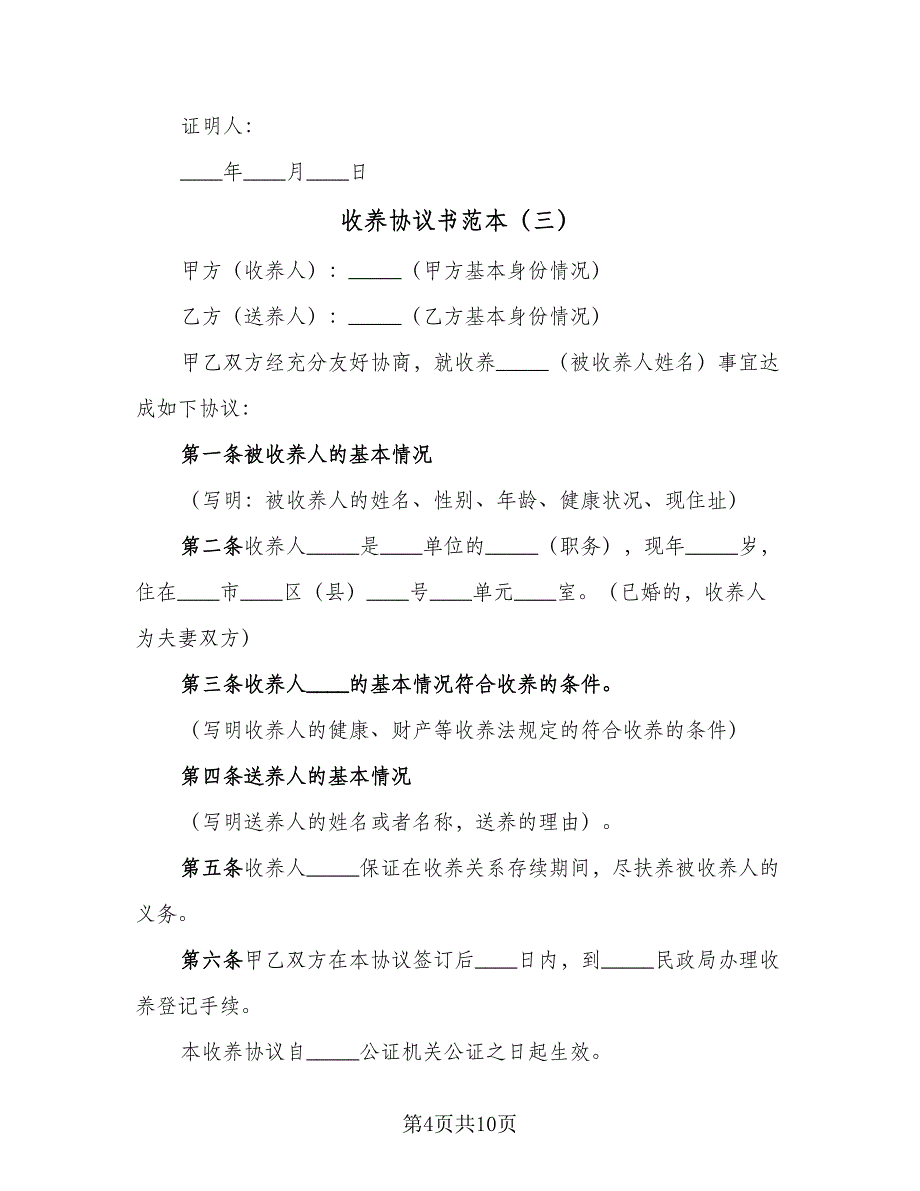 证明人：
____年____月____日
收养协议书范本（三）
甲方（收养人）：_____（甲方基本身份情况）
乙方（送养人）：_____（乙方基本身份情况）
甲乙双方经充分友好协商，就收养_____（被收养人姓名）事宜达
成如下协议：
第一条被收养人的基本情况
（写明：被收养人的姓名、性别、年龄、健康状况、现住址）
第二条收养人_____是____单位的_____（职务），现年_____岁，
住在____市____区（县）____号____单元____室。（已婚的，收养人
为夫妻双方）
第三条收养人____的基本情况符合收养的条件。
（写明收养人的健康、财产等收养法规定的符合收养的条件）
第四条送养人的基本情况
（写明送养人的姓名或者名称，送养的理由）。
第五条收养人_____保证在收养关系存续期间，尽扶养被收养人的
义务。
第六条甲乙双方在本协议签订后____日内，到_____民政局办理收
养登记手续。
本收养协议自_____公证机关公证之日起生效。
第4页共10页